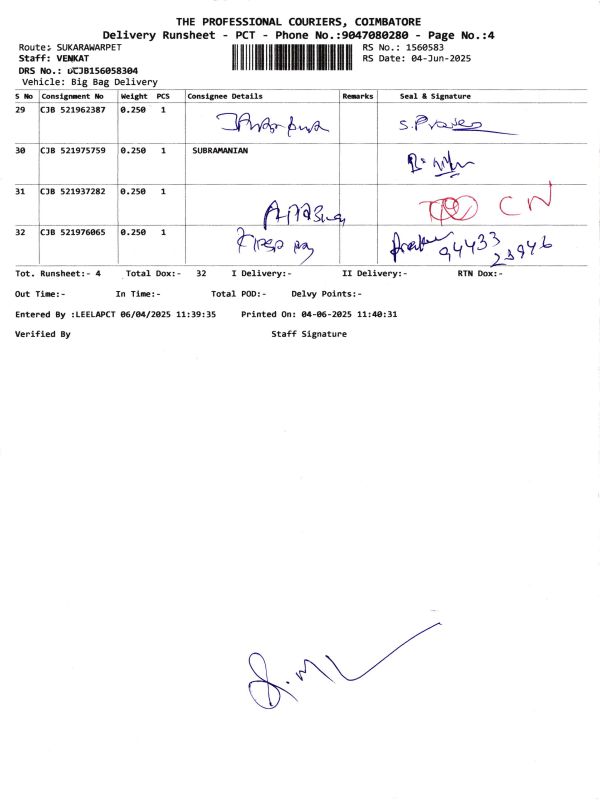 THE PROFESSIONAL COURIERS, COIMBATORE
Delivery Runsheet - PCT - Phone No.:9047080280 - Page No.:4
Route: SUKARAWARPET RS No.: 1560583
Staff: VENKAT RS Date: 04-Jun-2025
DRS No.: CJB156058304
Vehicle: Big Bag Delivery
S No Consignment No Weight PCS Consignee Details Remarks Seal & Signature
29 CJB 521962387 0.250 1
30 CJB 521975759 0.250 1 SUBRAMANIAN
31 CJB 521937282 0.250 1 CN
32 CJB 521976065 0.250 1 94433
23946
Tot. Runsheet:- 4 Total Dox:- 32 I Delivery:- II Delivery:- RTN Dox:-
Out Time:- In Time:- Total POD:- Delvy Points:-
Entered By :LEELAPCT 06/04/2025 11:39:35 Printed On: 04-06-2025 11:40:31
Verified By Staff Signature